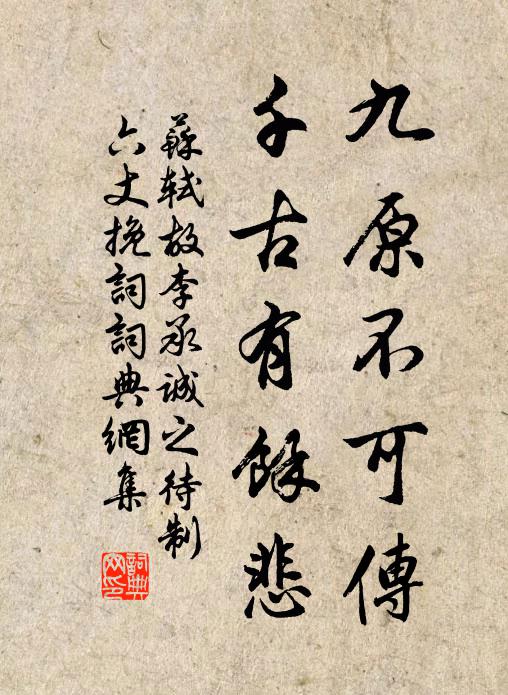 九原不可傳
千古有餘悲
蘇軾故李承誠之待制
六丈挽詞詞典網集
詞典網印